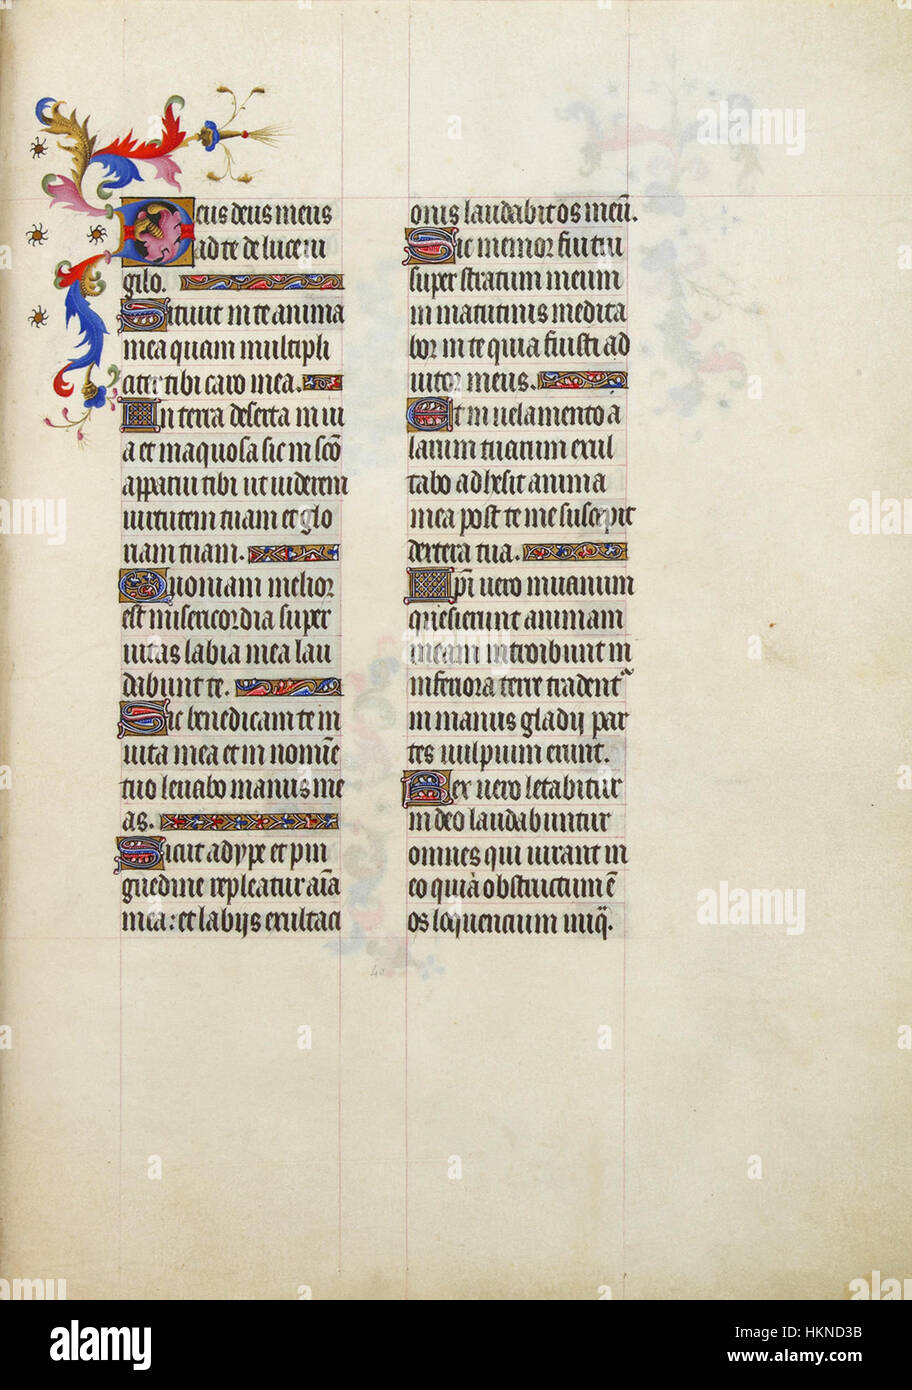 Deus deus meus
ad te de luce vi
gilo.
Sitivit in te anima
mea quam multipli
citer tibi caro mea.
In terra deserta in vi
a et inaquosa sic in sc̄o
apparui tibi ut viderem
virtutem tuam et glo
riam tuam.
Quoniam melior
est misericordia super
vitas labia mea lau
dabunt te.
Sic benedicam te in
vita mea et in nomīe
tuo levabo manus me
as.
Sicut adype et pin
guedine repleatur aīa
mea: et labijs exultaci
onis laudabit os meū.
Sic memor fui tui
super stratum meum
in matutinis medita
bor in te quia fuisti ad
iutor meus.
Et in velamento a
larum tuarum exul
tabo adhesit anima
mea post te me suscepit
dextera tua.
Ipī vero in vanum
quesierunt animam
meam introibunt in
inferiora terre tradentᷣ
in manus gladij par
tes vulpium erunt.
Rex vero letabitur
in deo laudabuntur
omnes qui iurant in
eo quia obstructum ē
os loquencium iniq̄.
40
alamy
a
alamy
Image ID: HKND3B
www.alamy.com